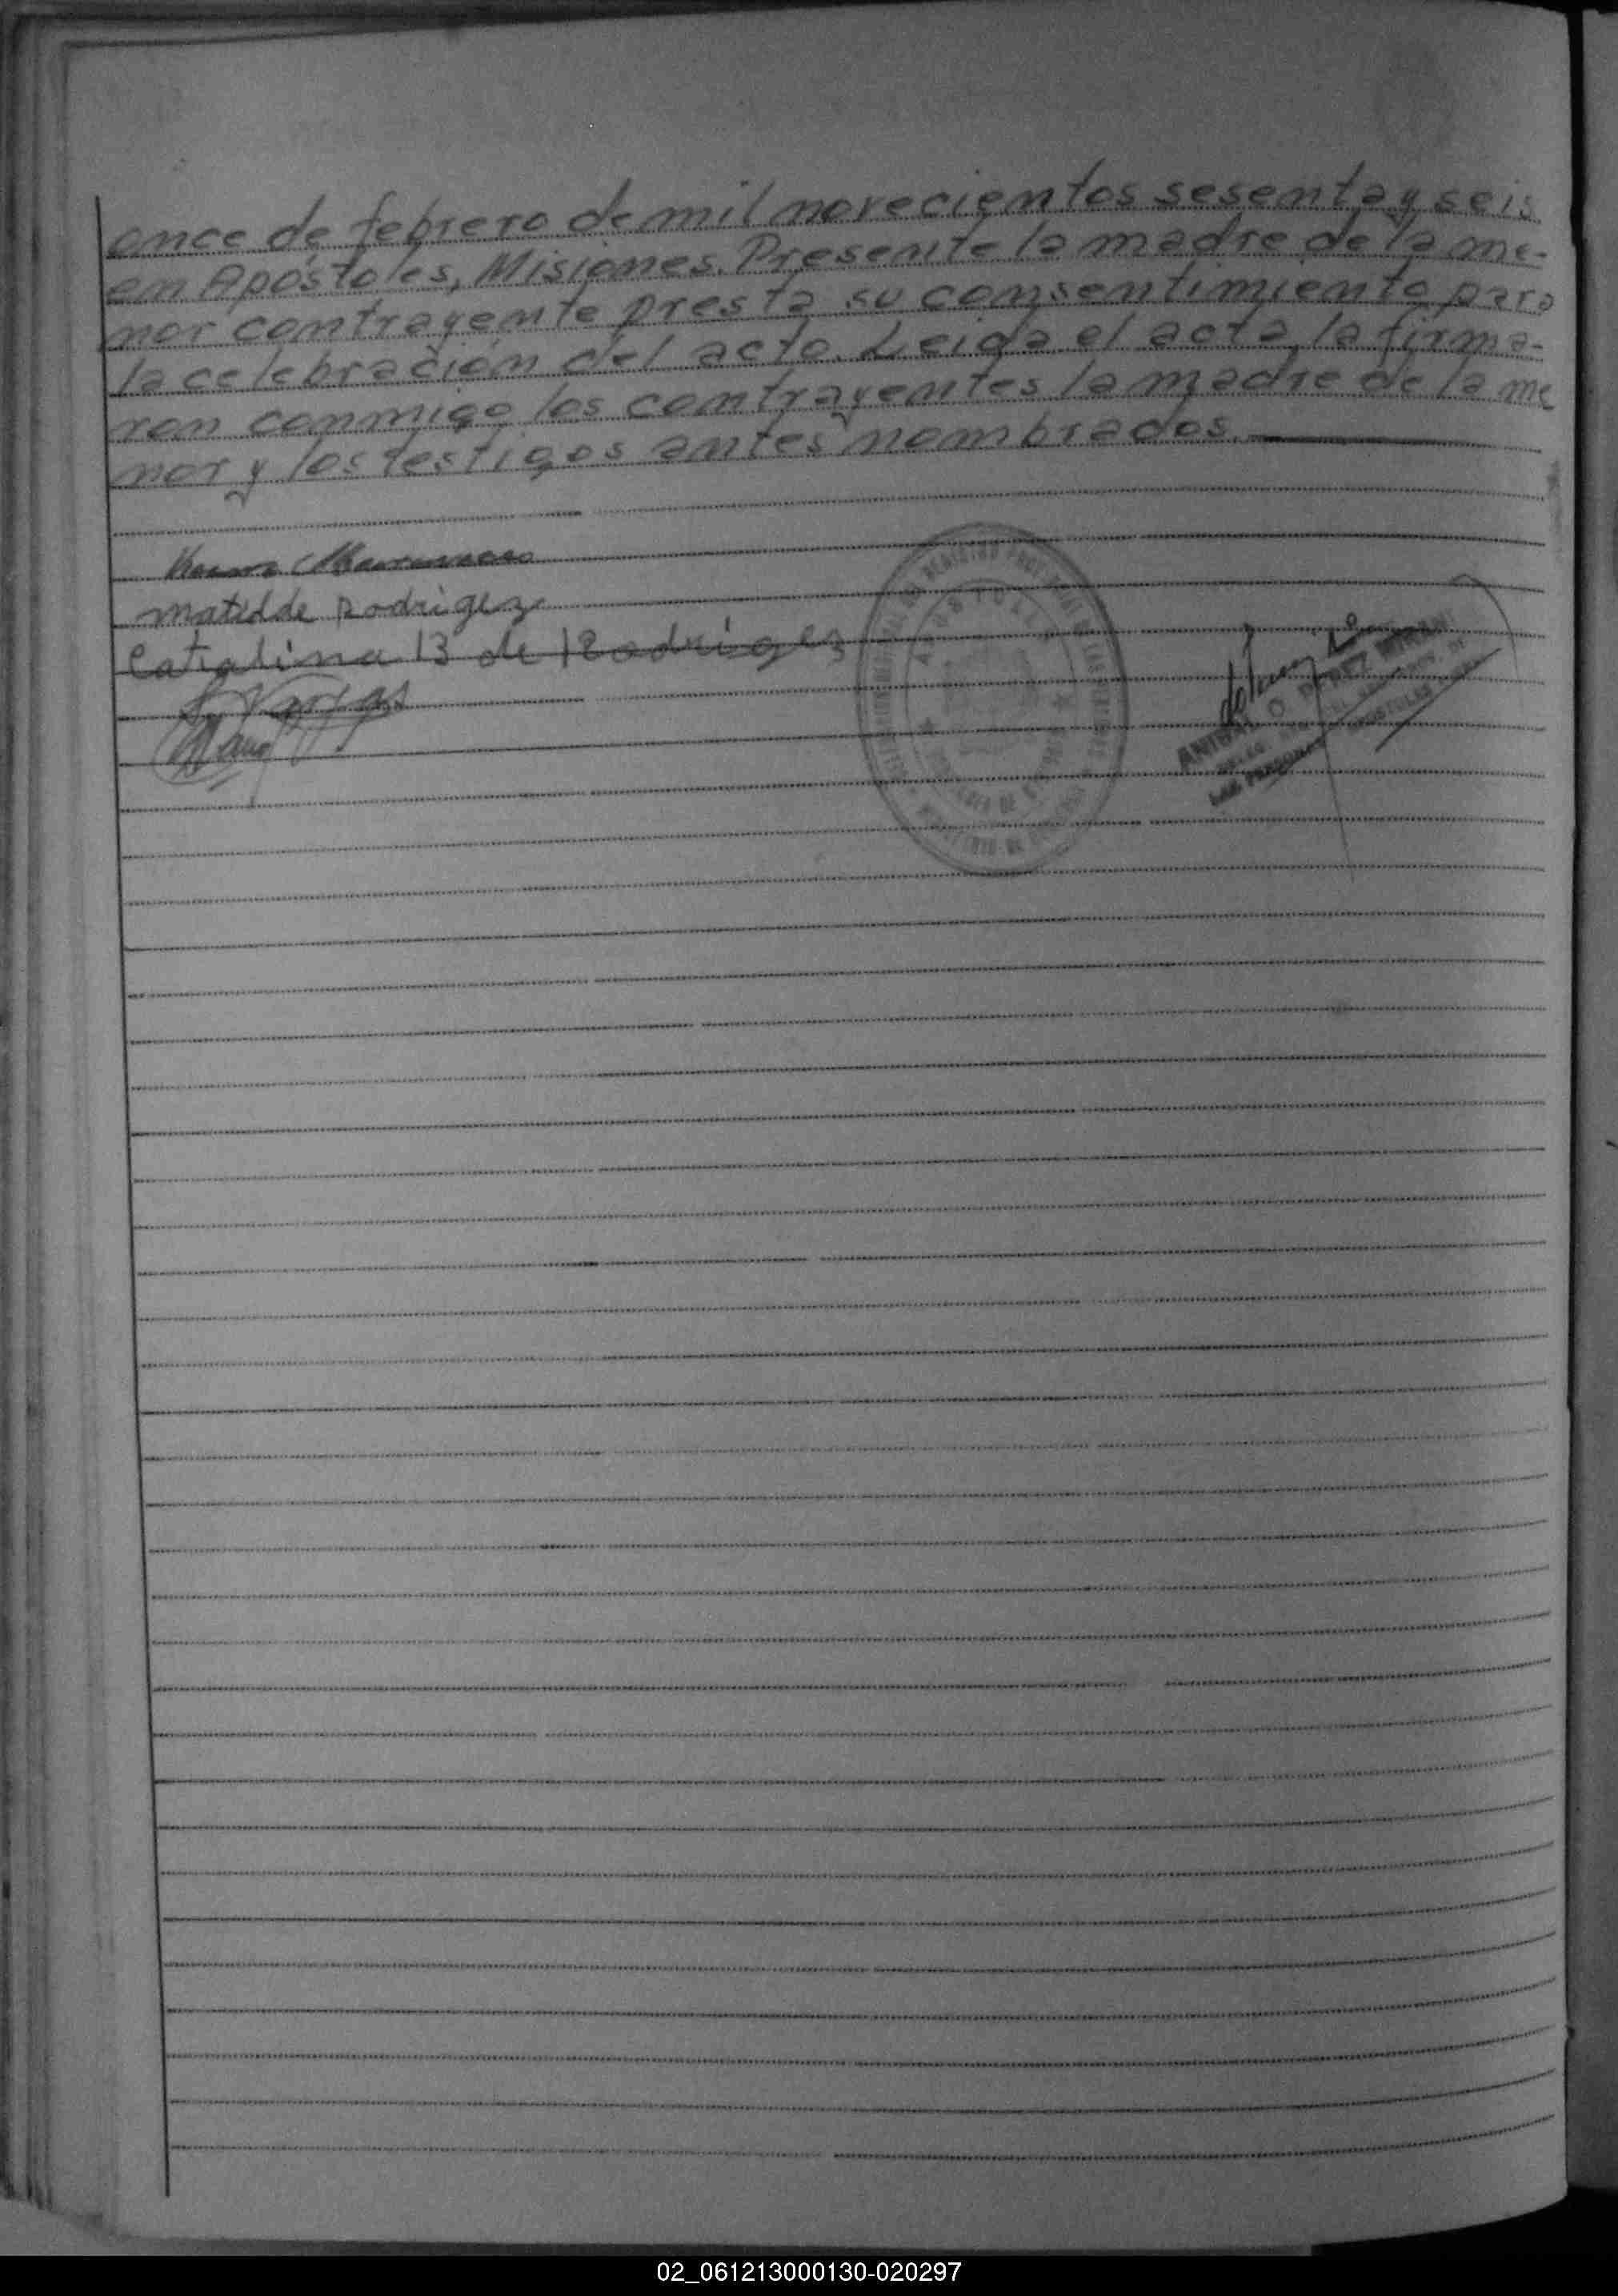 once de febrero de mil novecientos sesenta y seis
en Apóstoles, Misiones. Presente la madre de la me-
nor contrayente presta su consentimiento para
la celebración del acto. Leida el acta, la firma-
ron conmigo los contrayentes la madre de la me
nor y los testigos antes nombrados
matilde Rodrigez
Catalina B de Rodriges
Vargas
APOSTOLES
ANIBAL O. PEREZ
LAS PERSONAS APOSTOLES
02_061213000130-020297